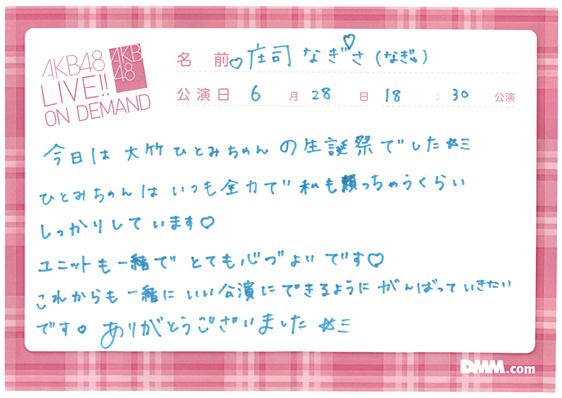 AKB48
LIVE!!
ON DEMAND
AKB
48
名前 ♡庄司なぎさ♡(なぎぃ)
公演日 6月28日 18:30 公演
今日は大竹ひとみちゃんの生誕祭でした☆彡
ひとみちゃんはいつも全力で私も頼っちゃうくらい
しっかりしています♡
ユニットも一緒でとても心づよいです♡
これからも一緒にいい公演にできるようにがんばっていきたい
です。ありがとうございました☆彡
DMM.com